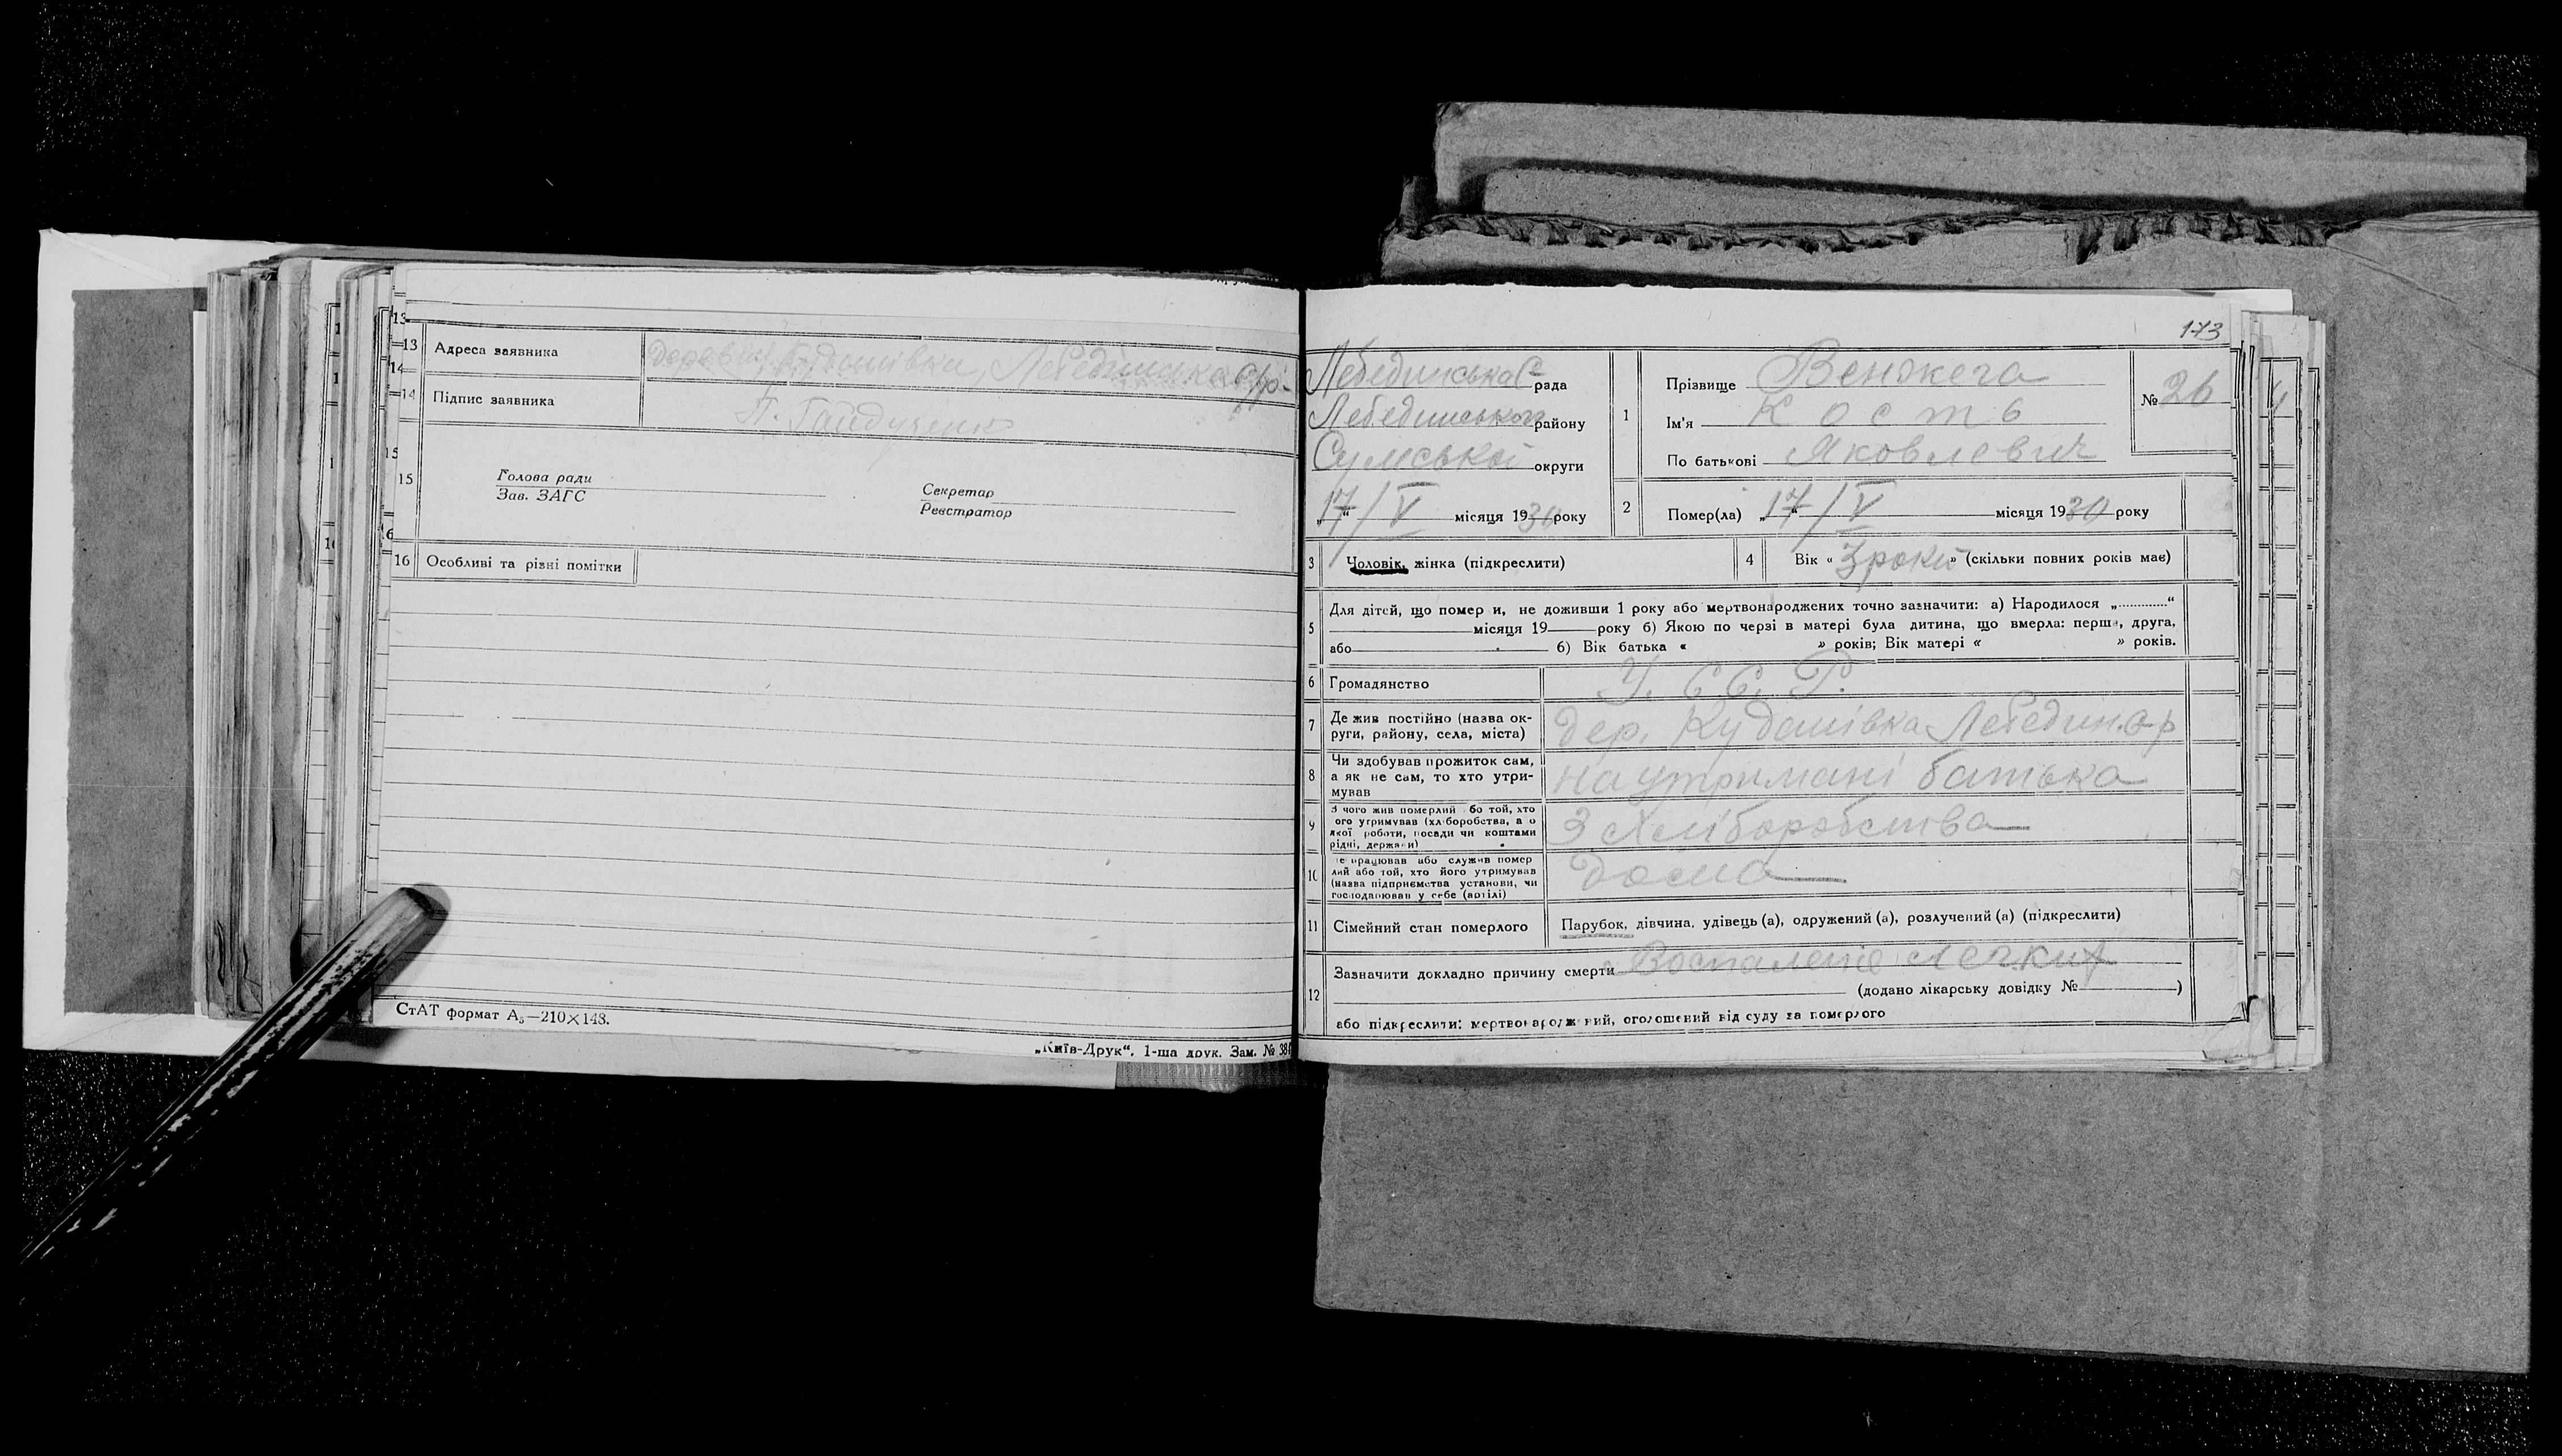 13 Адреса заявника Лебединська с/р
14 Підпис заявника П. Гайдученко
15 Голова ради
Зав. ЗАГС
Секретар
Реєстратор
16 Особливі та різні помітки
СтАТ формат А₅—210×148.
„Київ-Друк“. 1-ша друк. Зам. № 38
173
Лебединська С- рада
Лебединського району
Сумської округи
„17“/V місяця 1930 року
1 Прізвище
Ім'я Кость
По батькові Яковлевич
№ 26
2 Помер(ла) „17“/V місяця 1930 року
3 Чоловік, жінка (підкреслити)
4 Вік « 3 роки » (скільки повних років має)
5 Для дітей, що помер и, не доживши 1 року або мертвонароджених точно зазначити: а) Народилося „............“
місяця 19 року б) Якою по черзі в матері була дитина, що вмерла: перша, друга,
або б) Вік батька « » років; Вік матері « » років.
6 Громадянство У. С.С. Р.
7 Де жив постійно (назва ок-
руги, району, села, міста) дер. Кудашівка Лебедин. с-р
8 Чи здобував прожиток сам,
а як не сам, то хто утри-
мував на утримані батька
9 З чого жив померлий або той, хто
ого утримував (хліборобства, а о
якої роботи, посади чи коштами
рідні, держави) З Хліборобства
10 е працював або служив помер
лий або той, хто його утримував
(назва підприємства установи, чи
господарював у себе (артілі) Дома
11 Сімейний стан померлого Парубок, дівчина, удівець (а), одружений (а), розлучений (а) (підкреслити)
12 Зазначити докладно причину смерти Воспаленіє легких
(додано лікарську довідку № )
або підкреслити: мертвонароджений, оголошений від суду за померлого